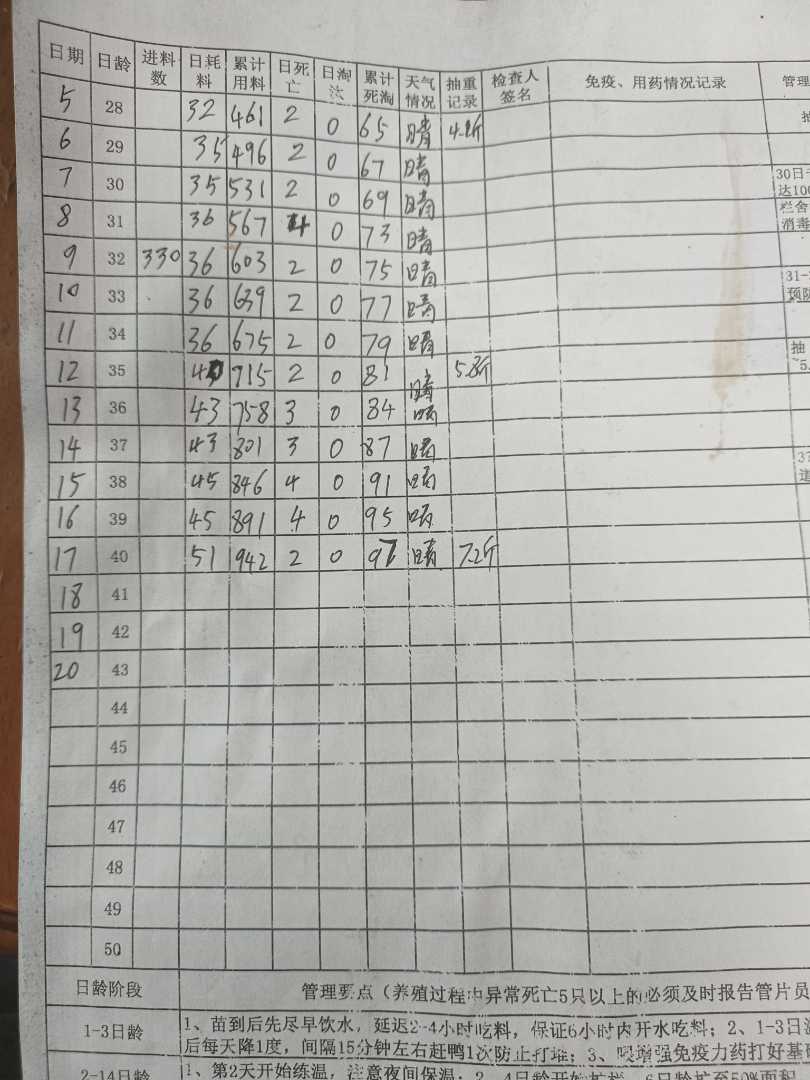 日期 日龄 进料数 日耗料 累计用料 日死亡 日淘汰 累计死淘 天气情况 抽重记录 检查人签名 免疫、用药情况记录 管理
5 28 32 461 2 0 65 晴
6 29 35 496 2 0 67 晴
7 30 35 531 2 0 69 晴 30日 达100
8 31 36 567 4 0 73 晴 栏舍 消毒
9 32 330 36 603 2 0 75 晴
10 33 36 639 2 0 77 晴 31-3 预防
11 34 36 675 2 0 79 晴
12 35 40 715 2 0 81 晴 5.8斤 抽 ~5.
13 36 43 758 3 0 84 晴
14 37 43 801 3 0 87 晴
15 38 45 846 4 0 91 晴 37
16 39 45 891 4 0 95 晴
17 40 51 942 2 0 97 晴 7.2斤
18 41
19 42
20 43
44
45
46
47
48
49
50
日龄阶段 管理要点（养殖过程中异常死亡5只以上的必须及时报告管片员
1-3日龄 1、苗到后先尽早饮水，延迟2-4小时吃料，保证6小时内开水吃料；2、1-3日
后每天降1度，间隔15分钟左右赶鸭1次防止打堆；3、喂增强免疫力药打好基
2-14日龄 1、第2天开始练温，注意夜间保温；2、4日龄开始扩栏，6日龄扩至50%面积